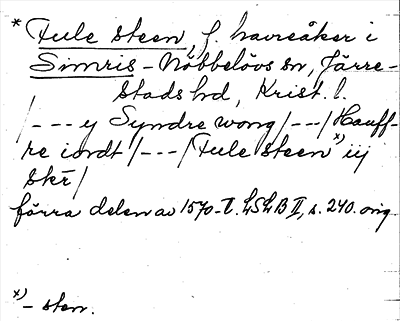 * Fule steen, f. havreåker i
Simris-Nöbbelövs sn, Järre-
stads hd, Krist. l.
/---y Syndre wong/---/Hauff-
re iordt/---/Fule steen x) iij
skr̄/
förra delen av 1570-t. LSLB II, s. 240. orig.
x) - sten.